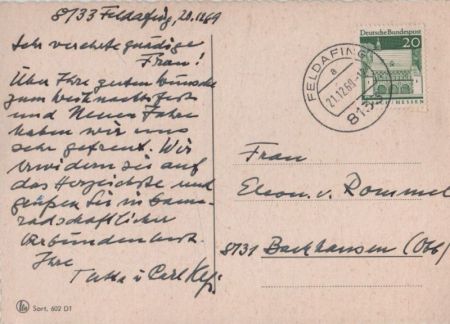 8133 Feldafing, 20.12.69
Sehr verehrte gnädige
Frau!
Über Ihre guten Wünsche
zum Weihnachtsfest
und Neuen Jahre
haben wir uns
sehr gefreut. Wir
erwidern sie auf
das Herzlichste und
grüßen Sie in kame-
radschaftlicher
Verbundenheit.
Ihre
u. Carl
Sort. 602 D1
Deutsche Bundespost
20
HESSEN
FELDAFING
a
21.12.69
813
Frau
v. Rommel
8131 (Obb)